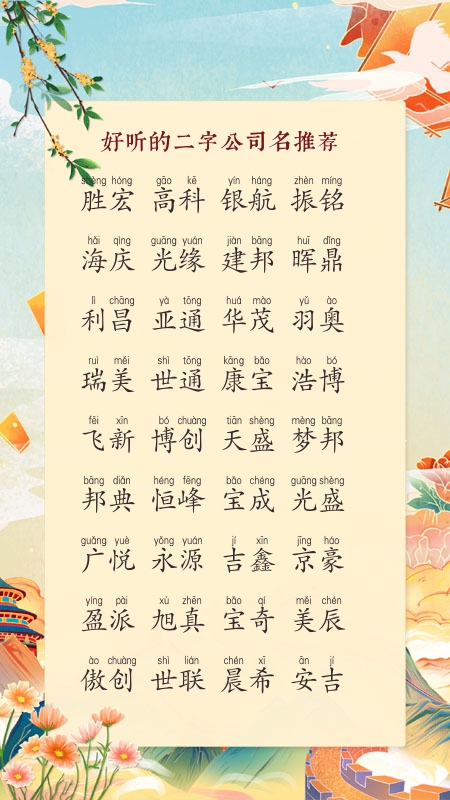 好听的二字公司名推荐
shèng hóng gāo kē yín háng zhèn míng
胜宏 高科 银航 振铭
hǎi qìng guāng yuán jiàn bāng huī dǐng
海庆 光缘 建邦 晖鼎
lì chāng yà tōng huá mào yǔ ào
利昌 亚通 华茂 羽奥
ruì měi shì tōng kāng bǎo hào bó
瑞美 世通 康宝 浩博
fēi xīn bó chuàng tiān shèng mèng bāng
飞新 博创 天盛 梦邦
bāng diǎn héng fēng bǎo chéng guāng shèng
邦典 恒峰 宝成 光盛
guǎng yuè yǒng yuán jí xīn jīng háo
广悦 永源 吉鑫 京豪
yíng pài xù zhēn bǎo qí měi chén
盈派 旭真 宝奇 美辰
ào chuàng shì lián chén xī ān jí
傲创 世联 晨希 安吉